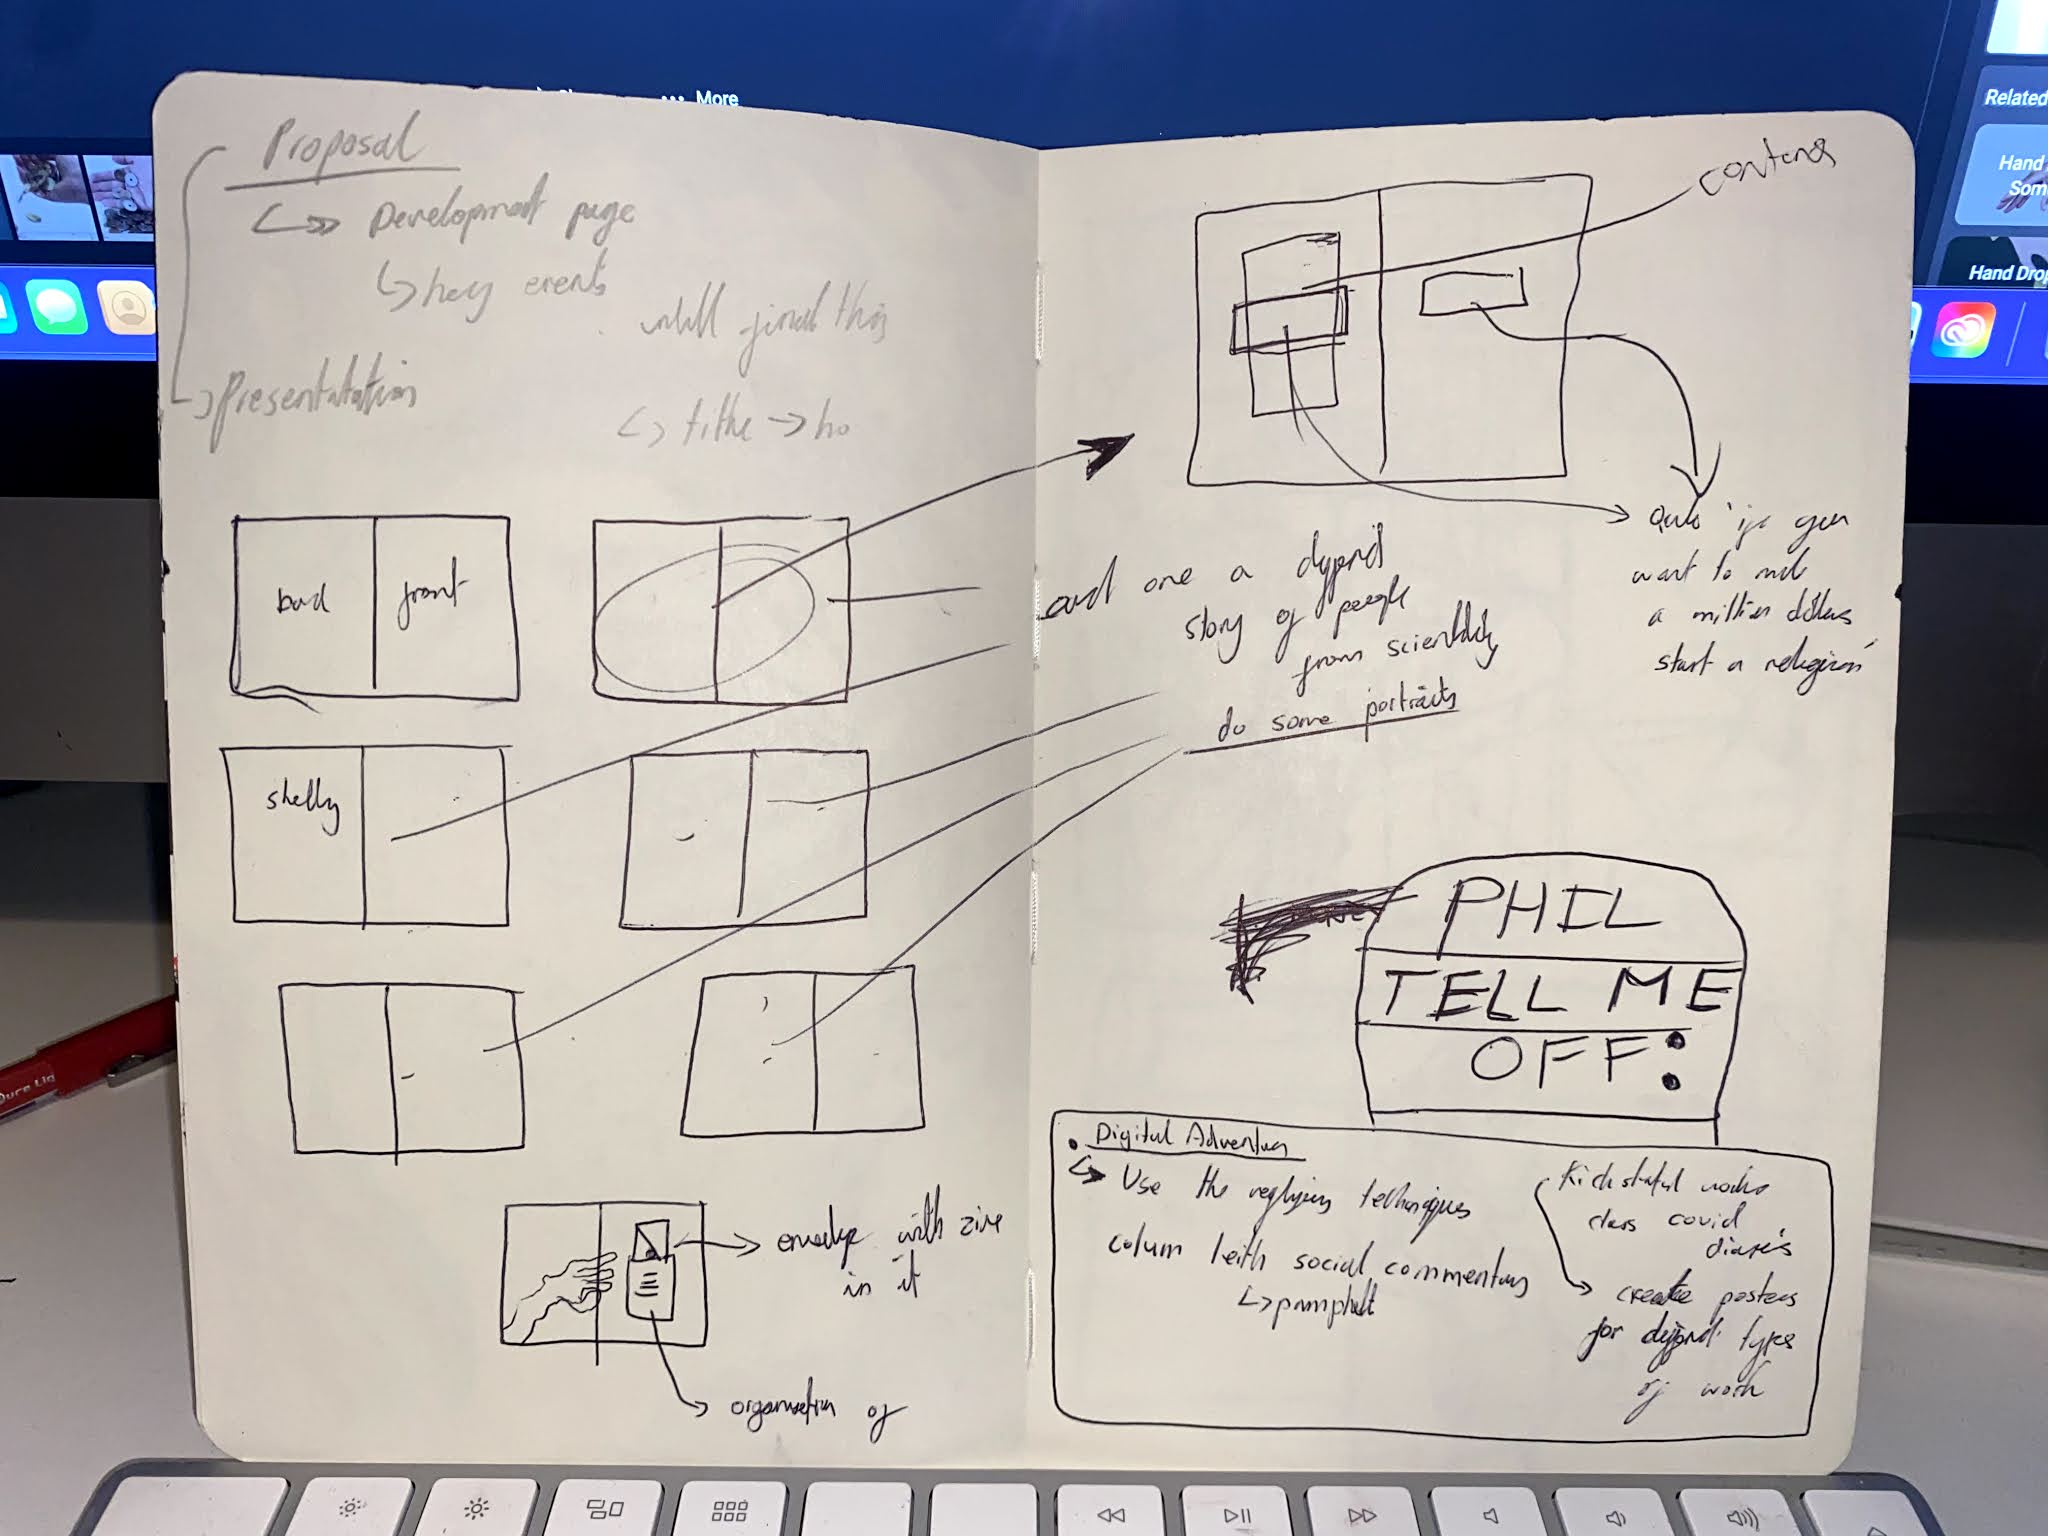 More
Related
Hand
Som
Hand Drop
Proposal
Development page
key events
this
presentatation
tithe → ho
back front
shelly
envelope with zine
in it
organisation of
contents
Quote 'if you
want to make
a million dollars
start a religion'
each one a different
story of people
from scientology
do some portraits
PHIL
TELL ME
OFF:
Digital Adventure
Use the techniques
column leith social commentary
pamphlet
class covid
diaries
create posters
for different types
of work